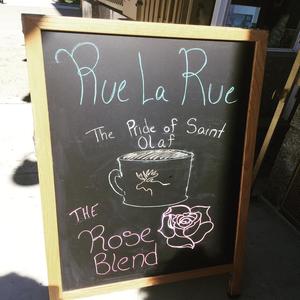 Rue La Rue
The Pride of Saint
Olaf
THE
Rose
Blend